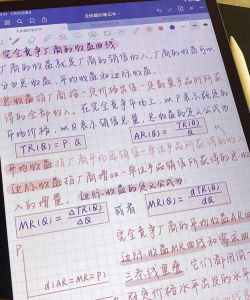 完全竞争厂商的收益曲线
厂商的收益就是厂商的销售收入。厂商的收益可以
分为总收益、平均收益和边际收益。
总收益指厂商按一定价格出售一定数量产品时所获
得的全部收入。在完全竞争市场上，以P表示既定的
市场价格，以Q表示销售总量，总收益的定义公式为：
TR(Q) = P·Q
AR(Q) = TR(Q)/Q
平均收益指厂商平均每销售一单位产品所获得的收入
边际收益指厂商增加一单位产品销售所获得的总收
入的增量。边际收益的定义公式为
MR(Q) = ΔTR(Q)/ΔQ 或者 MR(Q) = dTR(Q)/dQ
P
完全竞争厂商的平均收益AR
边际收益MR曲线和需求曲
d(AR=MR=P)
三条线重叠，它们都用同一
既定价格水平出发的水平